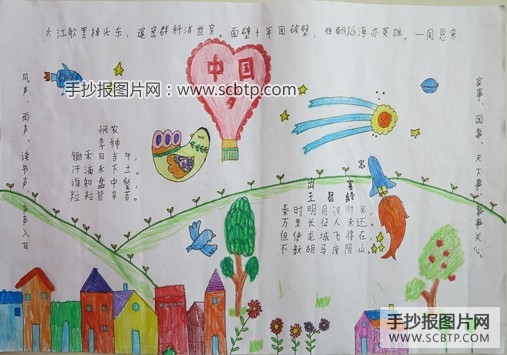 大江歌罢掉头东，邃密群科济世穷。面壁十年图破壁，难酬蹈海亦英雄。—周恩来
中国
手抄报图片网-www.scbtp.com-
风声、雨声、读书声，声声入耳
家事、国事、天下事，事事关心。
悯农
李绅
锄禾日当午，
汗滴禾下土。
谁知盘中餐，
粒粒皆辛苦。
出塞
王昌龄
秦时明月汉时关，
万里长征人未还。
但使龙城飞将在，
不教胡马度阴山。
手抄报图片网
SCBTP.COM